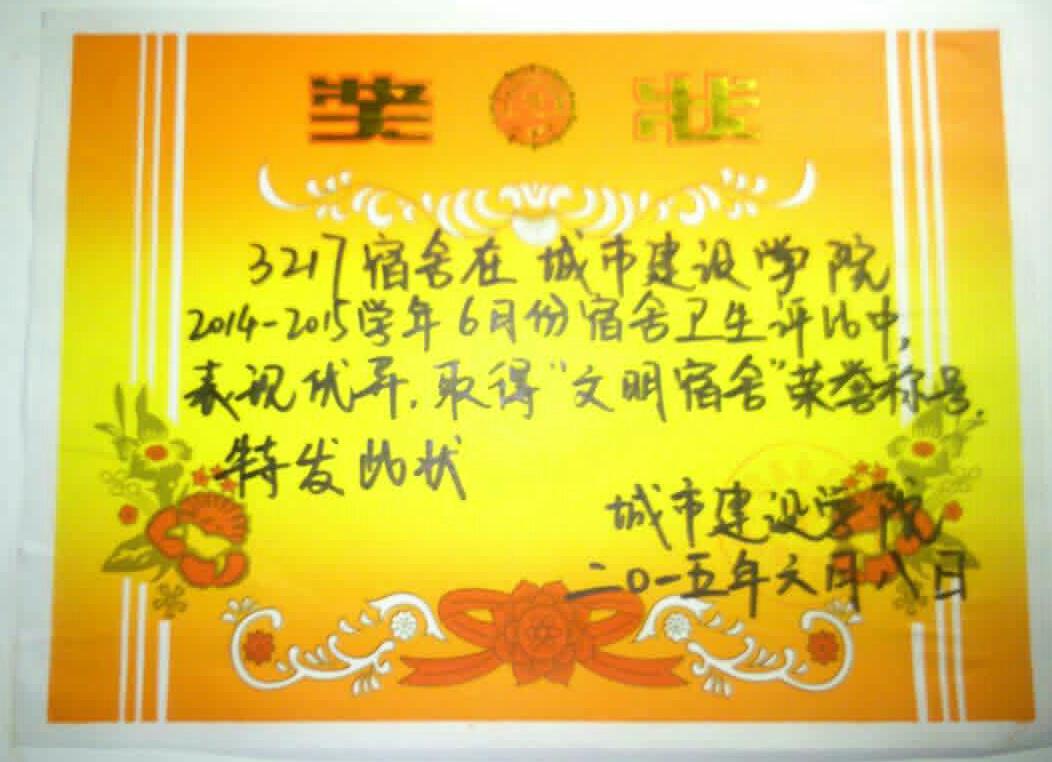 奖状
3217宿舍在城市建设学院
2014-2015学年6月份宿舍卫生评比中,
表现优异,取得"文明宿舍"荣誉称号.
特发此状
城市建设学院
二〇一五年六月八日